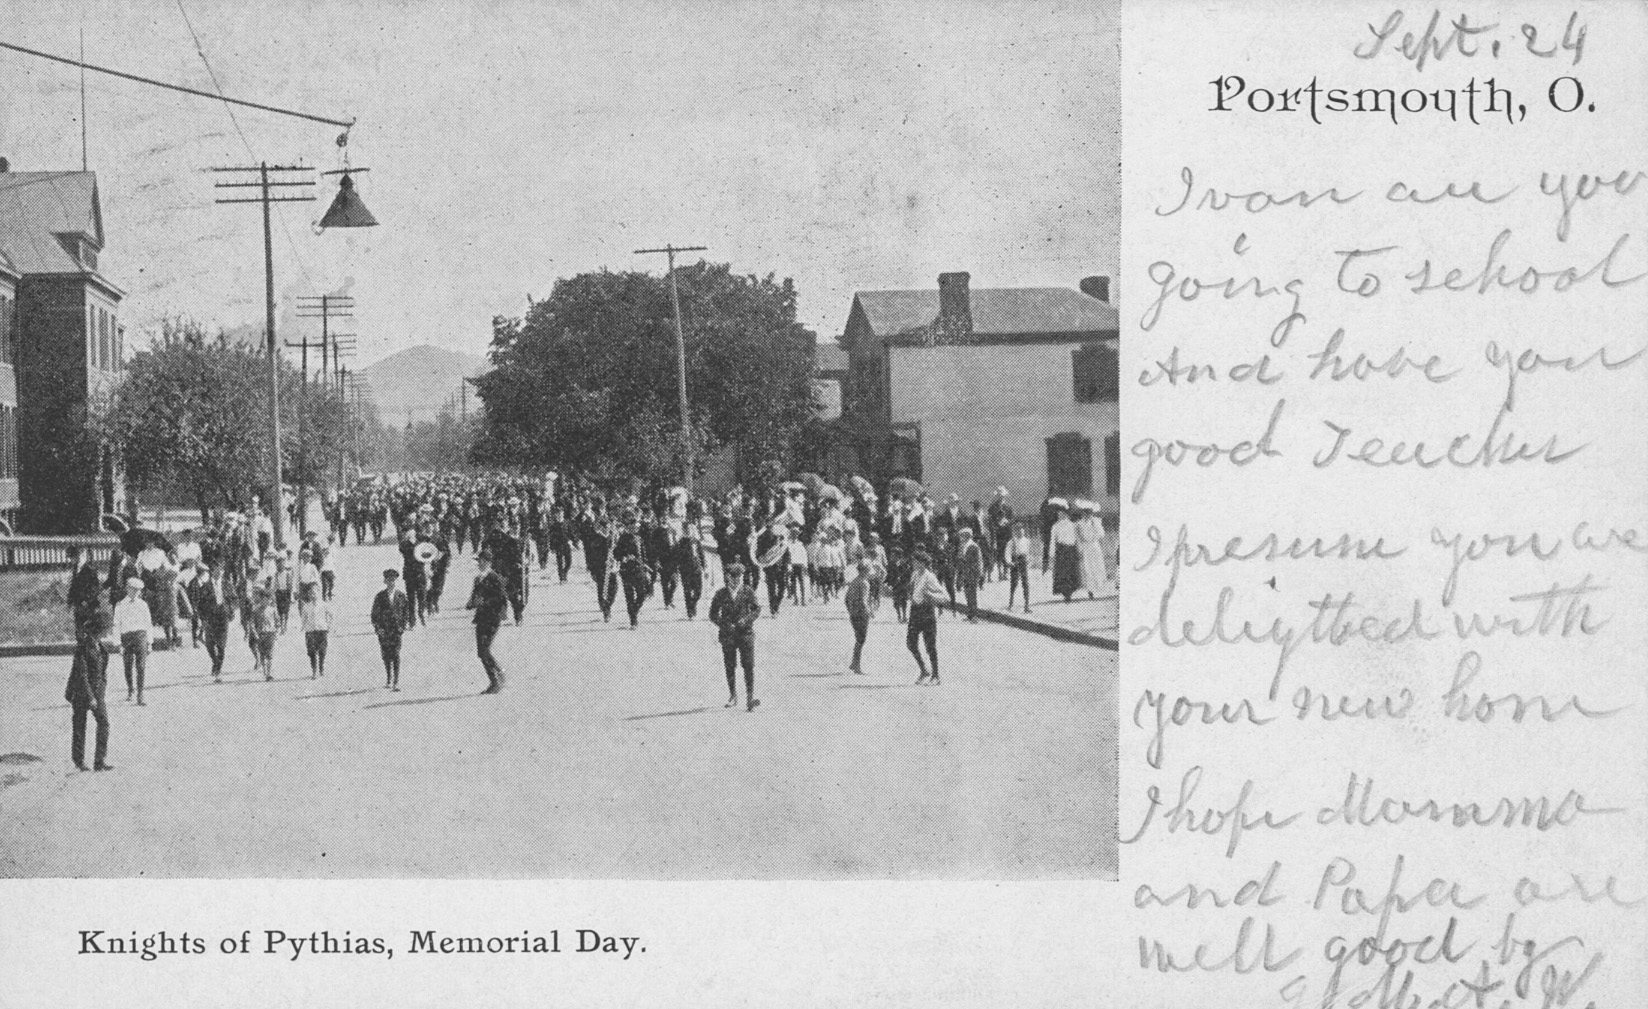 Sept. 24
Portsmouth, O.
Ivan are you
going to school
And have you
good Teacher
I presume you are
deligthed with
your new home
I hope Mamma
and Papa are
well good by
A. W.
Knights of Pythias, Memorial Day.